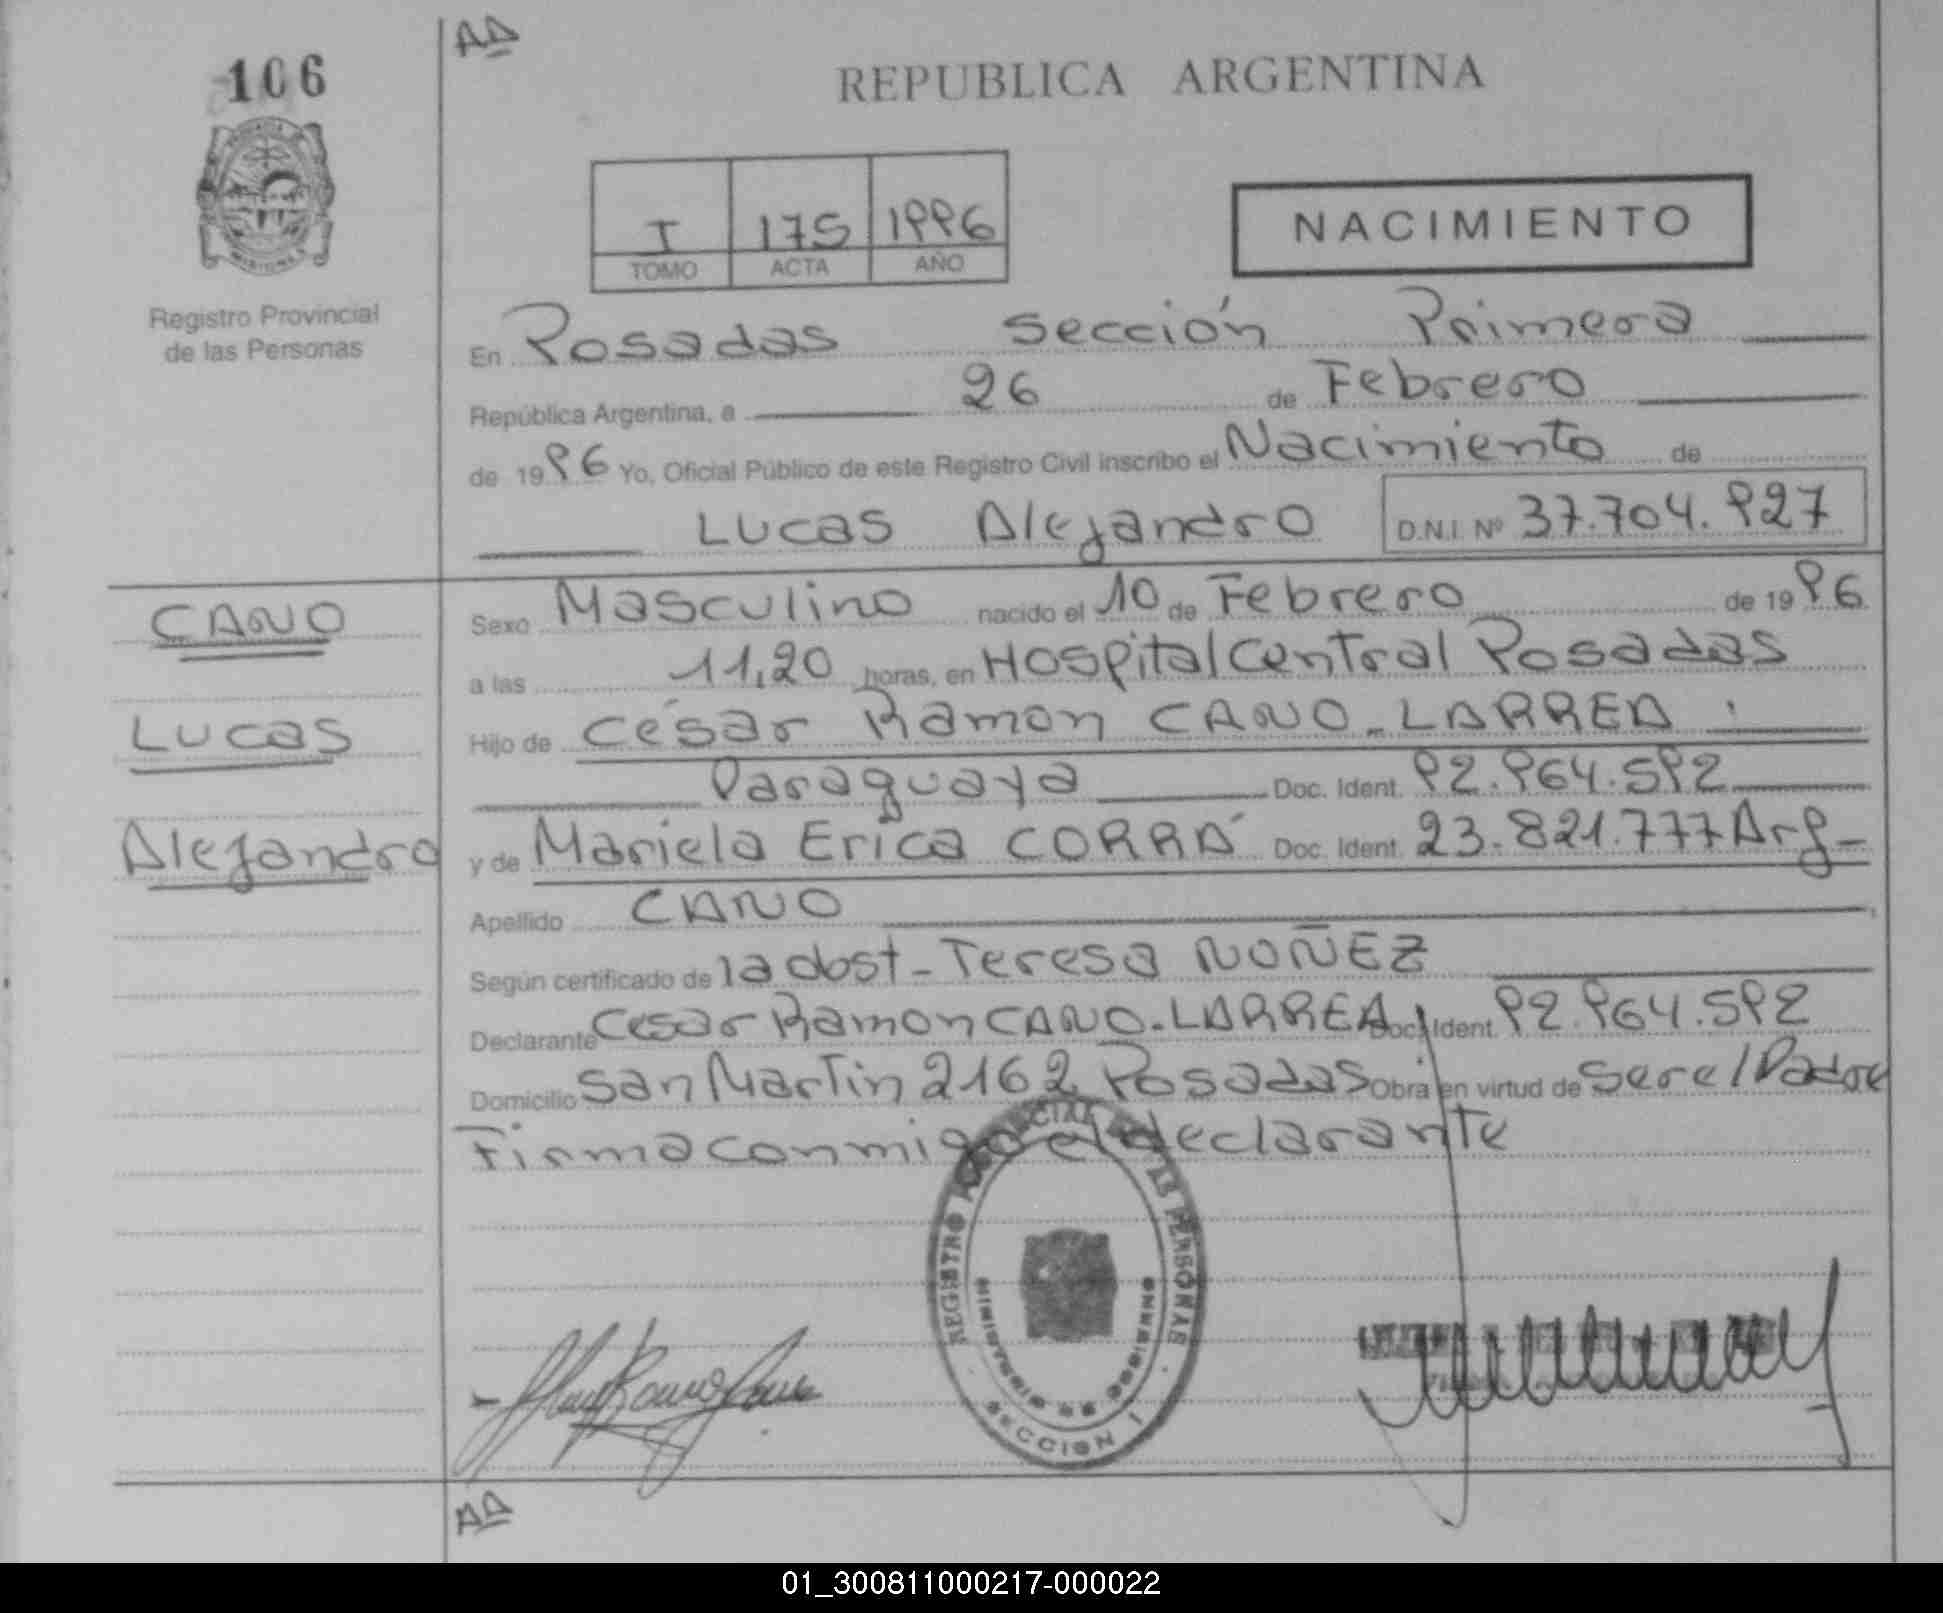 AD
106
REPUBLICA ARGENTINA
PROVINCIA
MISIONES
I 175 1996
TOMO ACTA AÑO
NACIMIENTO
Registro Provincial
de las Personas
En Posadas Sección Primera
República Argentina, a 26 de Febrero
de 1996 Yo, Oficial Público de este Registro Civil inscribo el Nacimiento de
Lucas Alejandro D.N.I. Nº 37.704.927
CANO
Lucas
Alejandro
Sexo Masculino nacido el 10 de Febrero de 1996
a las 11,20 horas, en Hospital Central Posadas
Hijo de César Ramon CANO-LARREA
Paraguaya Doc. Ident. 92.964.592
y de Mariela Erica CORRÁ Doc. Ident. 23.821.777 Arg-
Apellido CANO
Según certificado de la obst- Teresa NOÑEZ
Declarante Cesar Ramon CANO-LARREA Doc. Ident. 92.964.592
Domicilio San Martin 2162 Posadas Obra en virtud de ser el Padre
Firma conmigo el declarante
REGISTRO PROVINCIAL DE LAS PERSONAS
SECCION 1
AD
01_300811000217-000022